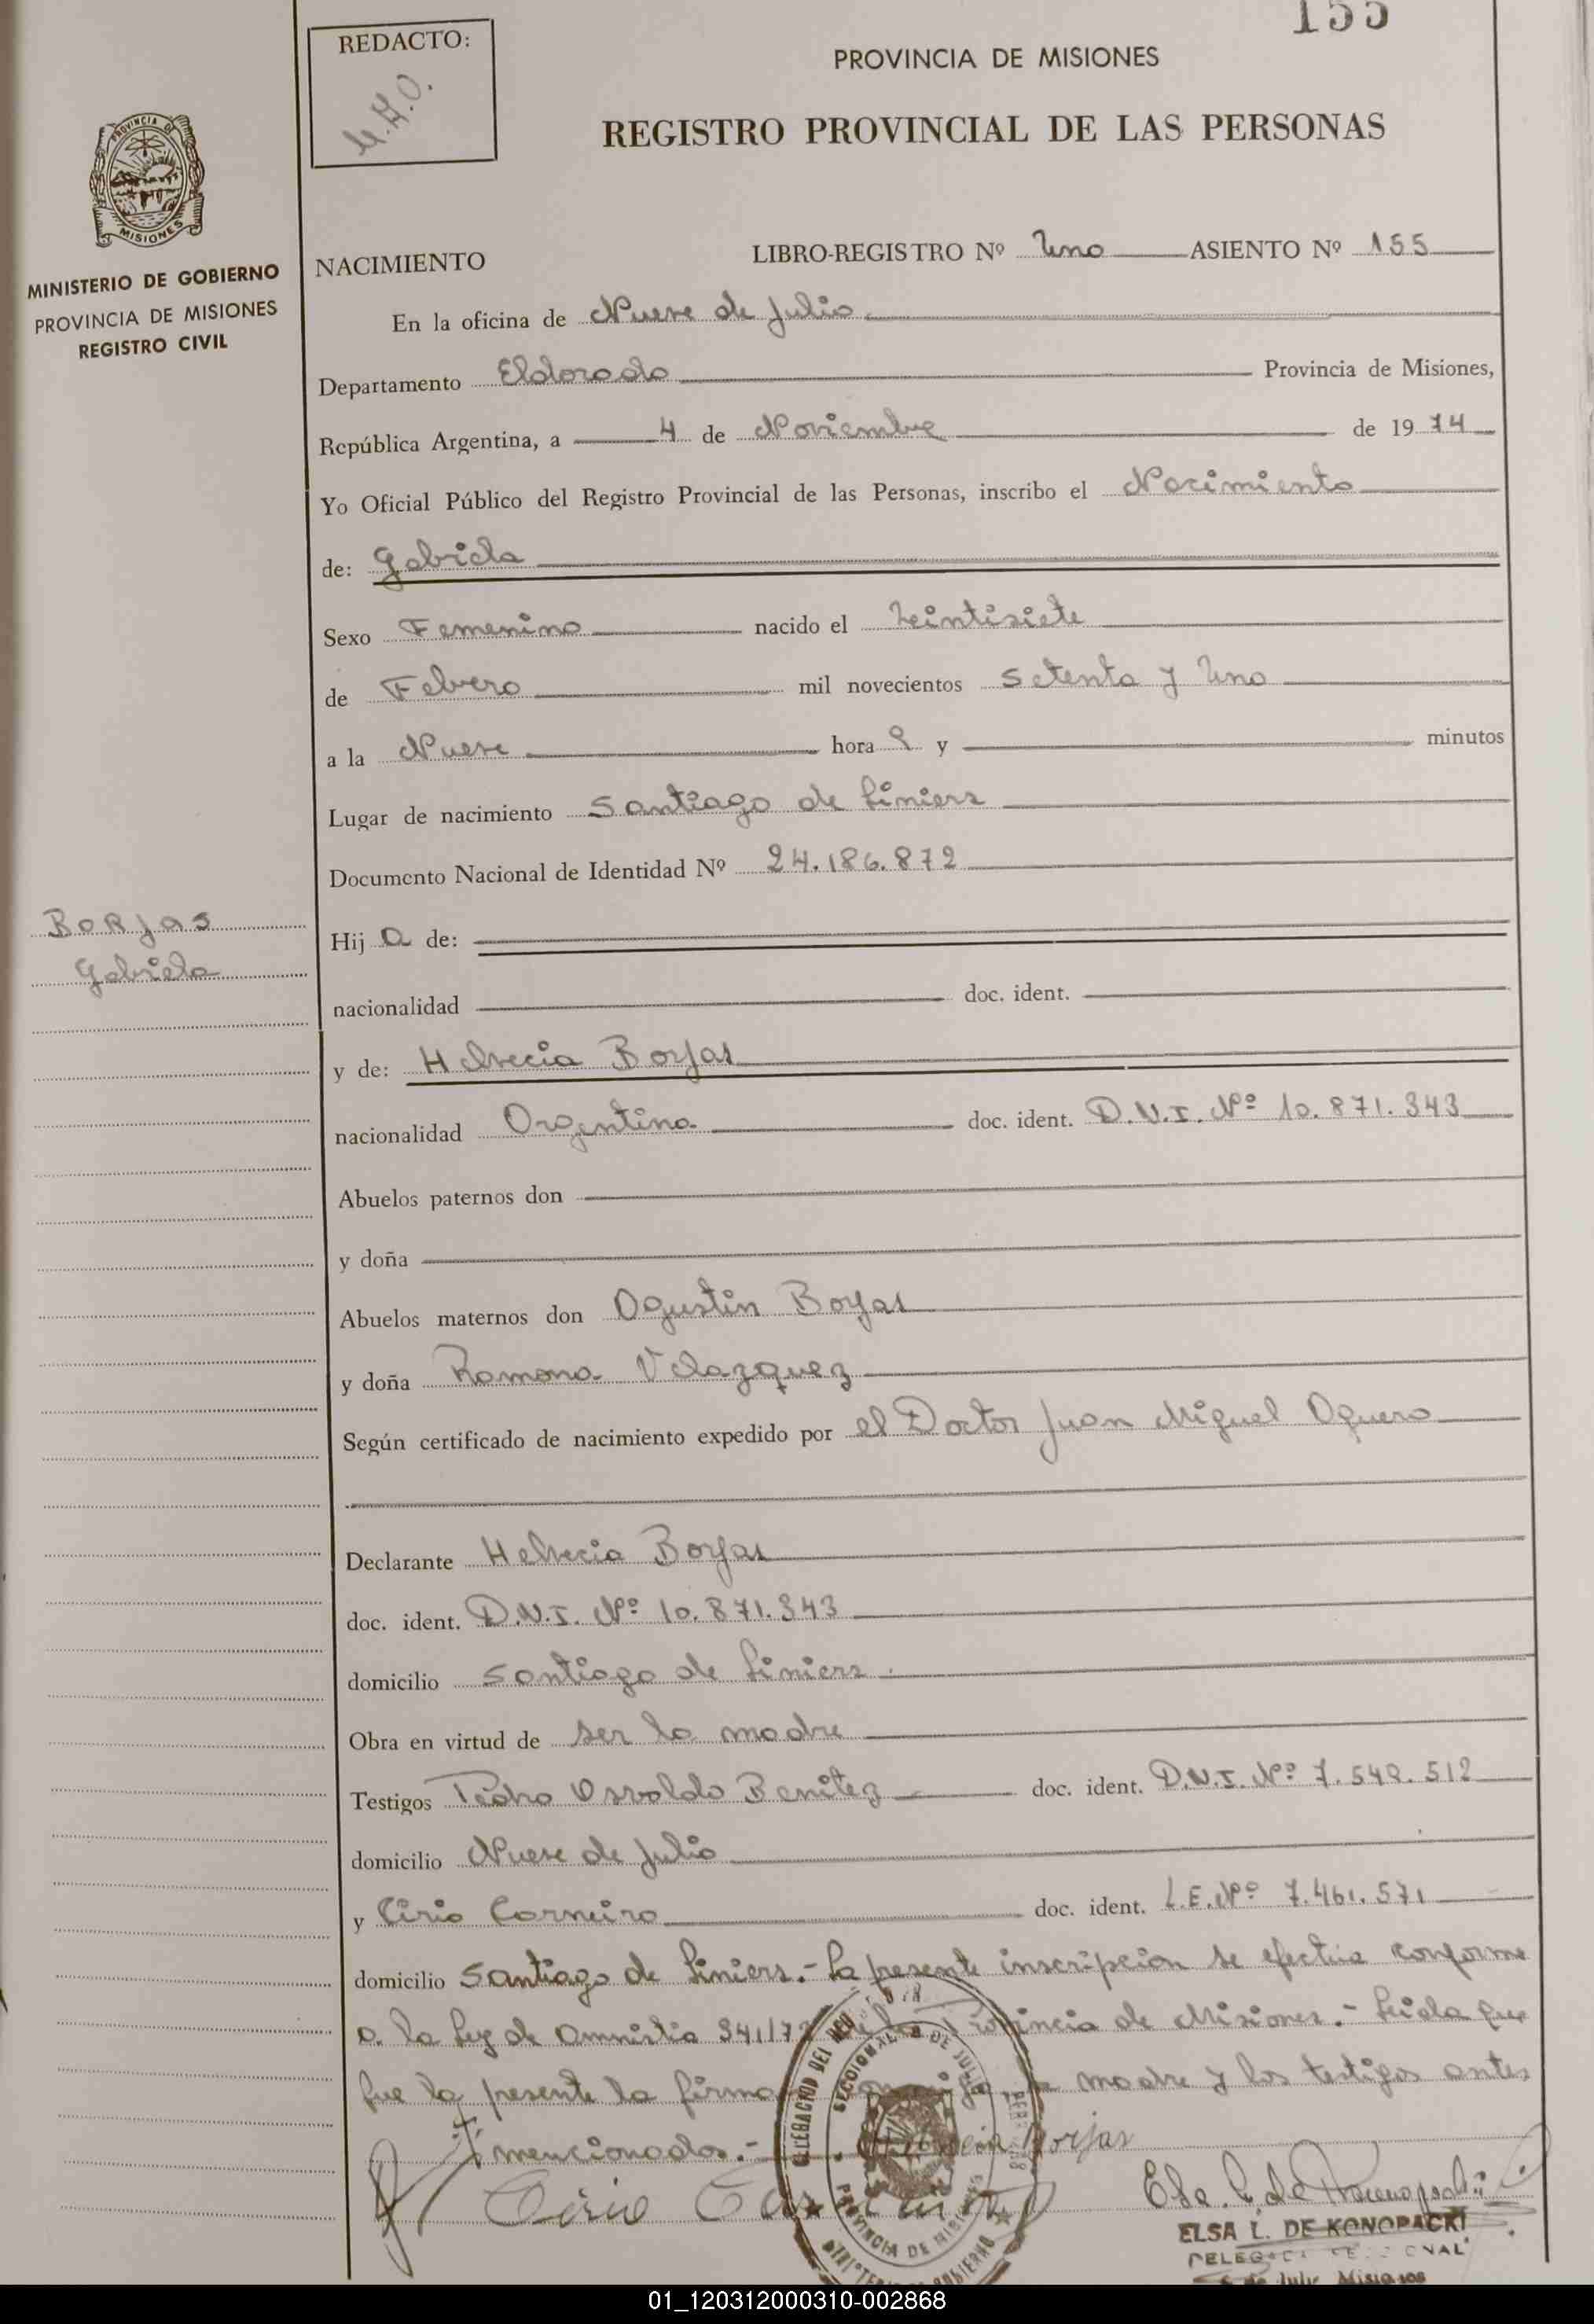 155
REDACTO:
PROVINCIA DE MISIONES
REGISTRO PROVINCIAL DE LAS PERSONAS
PROVINCIA DE
MISIONES
MINISTERIO DE GOBIERNO
PROVINCIA DE MISIONES
REGISTRO CIVIL
NACIMIENTO LIBRO-REGISTRO Nº Uno ASIENTO Nº 155
En la oficina de Nueve de Julio
Departamento Eldorado Provincia de Misiones,
República Argentina, a 4 de Noviembre de 1974
Yo Oficial Público del Registro Provincial de las Personas, inscribo el Nacimiento
de: Gabriela
Sexo Femenino nacido el Veintisiete
de Febrero mil novecientos Setenta y Uno
a la Nueve hora 9 y minutos
Lugar de nacimiento Santiago de Liniers
Documento Nacional de Identidad Nº 24.186.872
Borjas
Gabriela
Hij a de:
nacionalidad doc. ident.
y de: Helvecia Borjas
nacionalidad Argentina doc. ident. D.N.I. Nº 10.871.343
Abuelos paternos don
y doña
Abuelos maternos don Agustin Borjas
y doña Ramona Velazquez
Según certificado de nacimiento expedido por el Doctor Juan Miguel Aguero
Declarante Helvecia Borjas
doc. ident. D.N.I. Nº 10.871.343
domicilio Santiago de Liniers.
Obra en virtud de ser la madre
Testigos Pedro Osvaldo Benitez doc. ident. D.N.I. Nº 7.549.512
domicilio Nueve de Julio
y Cirio Carneiro doc. ident. L.E. Nº 7.461.571
domicilio Santiago de Liniers.- La presente inscripción se efectúa conforme
a la Ley de Amnistia 341/72 de la Provincia de Misiones.- Leida que
fue la presente la firma conmigo la madre y los testigos antes
mencionados.- Helvecia Borjas
Cirio Carneiro
ELSA L. DE KONOPACKI
DELEGADA SECCIONAL
9 de Julio Misiones
SECCIONAL 9 DE JULIO
PROVINCIA DE MISIONES
01_120312000310-002868